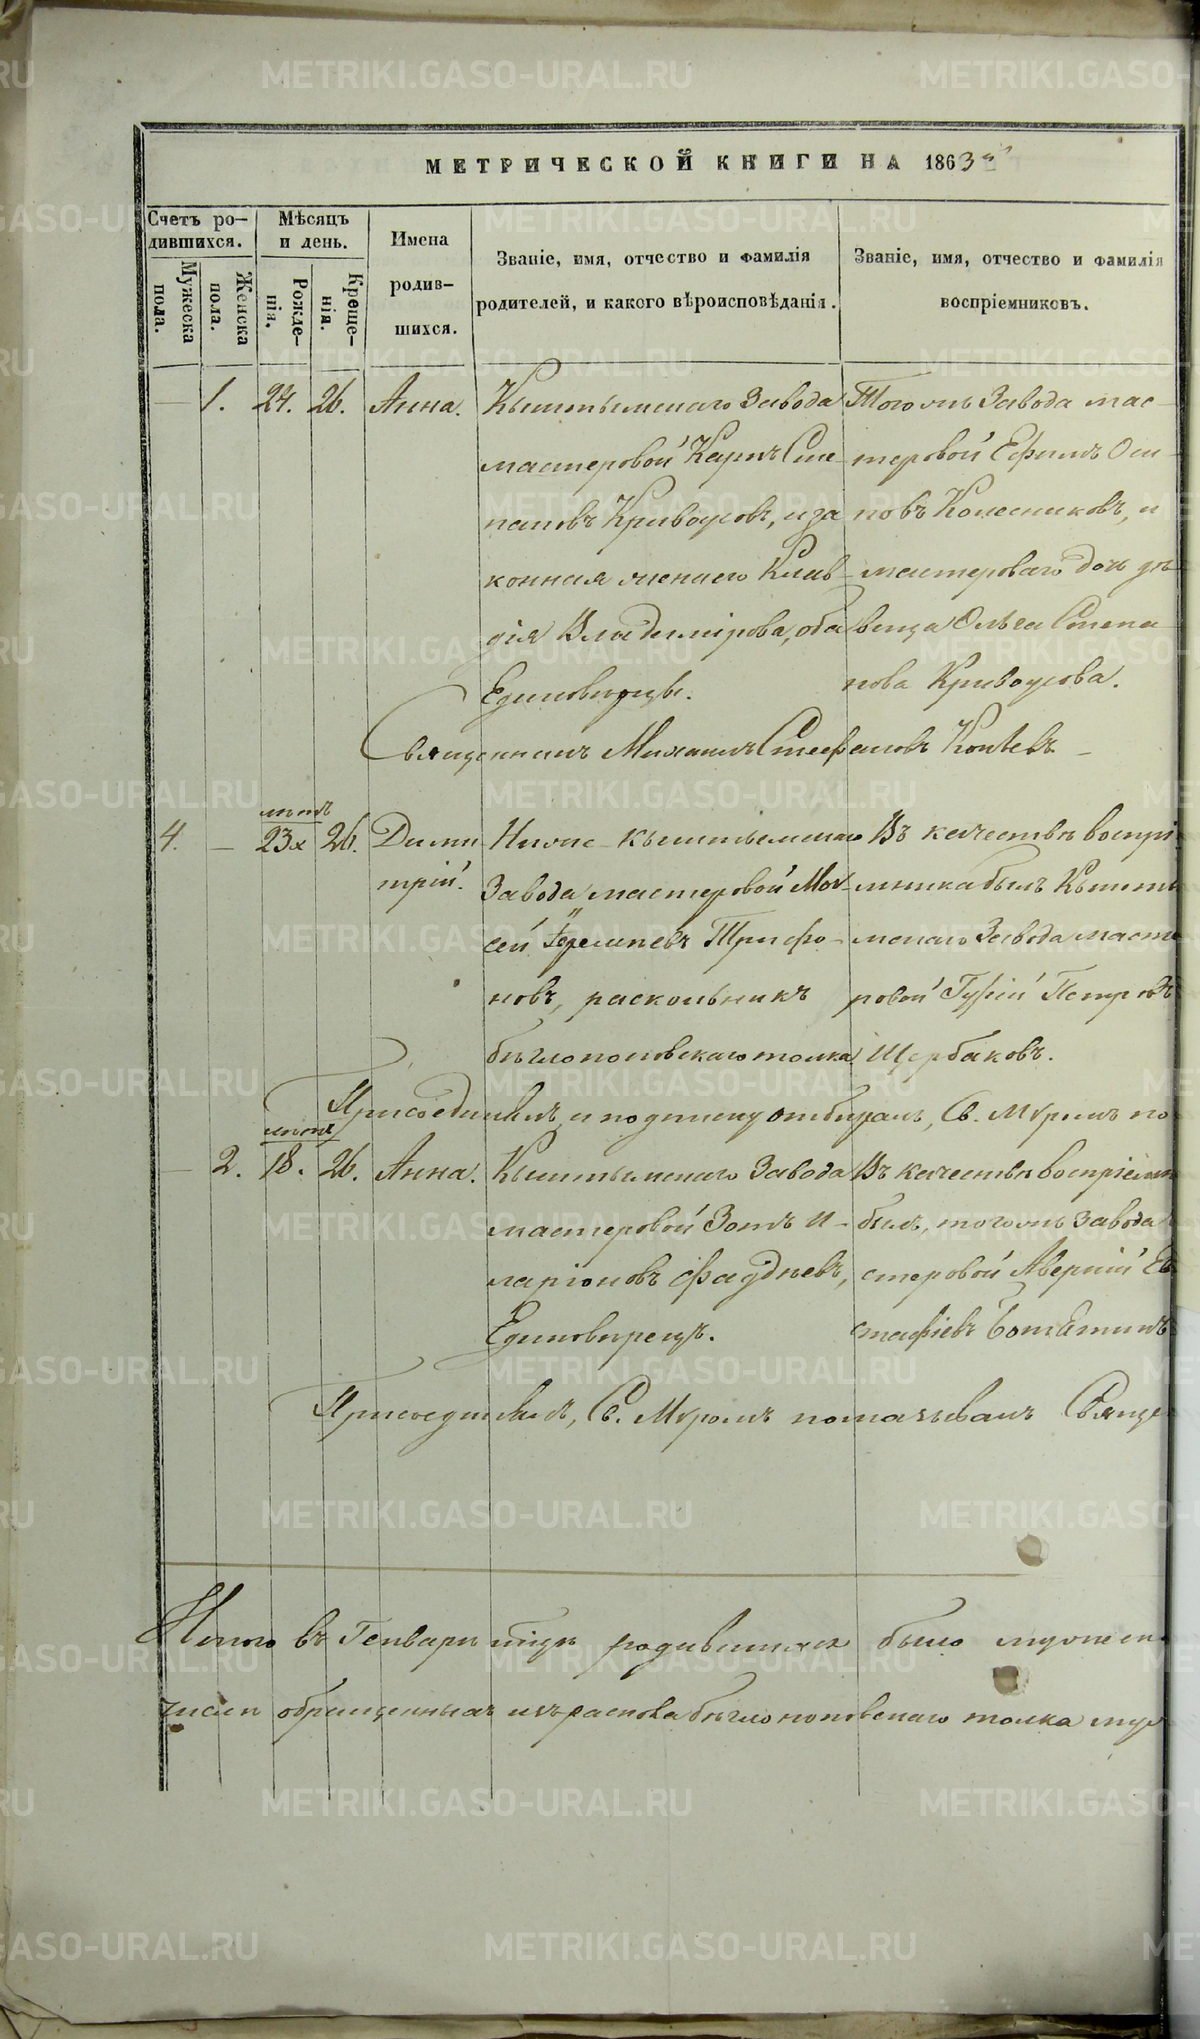 МЕТРИЧЕСКОЙ КНИГИ НА 1863
Счетъ ро-
дившихся.
Мужеска
пола.
Женска
пола.
Мѣсяцъ
и день.
Рожде-
нія.
Креще-
нія.
Имена
родив-
шихся.
Званіе, имя, отчество и фамилія
родителей, и какого вѣроисповѣданія.
Званіе, имя, отчество и фамилія
воспріемниковъ.
1. 24. 26. Анна.
Кыштымскаго Завода
мастеровой Карпъ Сте-
пановъ Кривоусовъ, и за
конная жена его Клав-
дія Владимірова, оба
Единовѣрцы.
Того жъ Завода мас-
теровой Ефимъ Оси-
повъ Колесниковъ, и
мастероваго дочь дѣ-
вица Ольга Степа-
нова Кривоусова.
Священникъ Михаилъ Стефановъ
лѣтъ
4. — 23х 26. Дими
трій.
Ниже-Кыштымскаго
Завода мастеровой Мои-
сей Трифо-
новъ, раскольникъ
бѣглопоповскаго толка
Въ качествѣ воспрі
мника былъ Кышты
мскаго Завода масте
ровой Гурій Петровъ
Щербаковъ.
Присоединилъ, и подписку отбиралъ, Св. Мѵромъ по
— 2. 18. 26. Анна.
Кыштымскаго Завода
мастеровой Зотъ И-
ларіоновъ Фаддѣевъ,
Единовѣрецъ.
Въ качествѣ воспріемн
былъ, того жъ Завода
стеровой Аверкій Ев
стафіевъ
Присоединилъ, Св. Мѵромъ помазывалъ Священ
Итого въ Генварѣ мцѣ родившихся было мужеск
числѣ обращенныхъ изъ раскола бѣглопоповскаго толка муж
METRIKI.GASO-URAL.RU